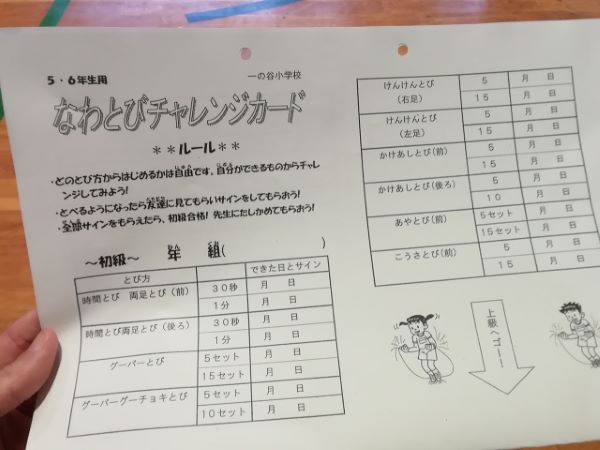 5・6年生用
一の谷小学校
なわとびチャレンジカード
＊＊ルール＊＊
・どのとび方からはじめるかは自由です。自分ができるものからチャレ
ンジしてみよう！
・とべるようになったら友達に見てもらいサインをしてもらおう！
・全部サインをもらえたら、初級合格！先生にたしかめてもらおう！
～初級～ 年 組（ ）
とび方 できた日とサイン
時間とび 両足とび（前） 30秒 月 日
1分 月 日
時間とび両足とび（後ろ） 30秒 月 日
1分 月 日
グーパーとび 5セット 月 日
15セット 月 日
グーパーグーチョキとび 5セット 月 日
10セット 月 日
けんけんとび（右足） 5 月 日
15 月 日
けんけんとび（左足） 5 月 日
15 月 日
かけあしとび（前） 5 月 日
15 月 日
かけあしとび（後ろ） 5 月 日
10 月 日
あやとび（前） 5セット 月 日
15セット 月 日
こうさとび（前） 5 月 日
15 月 日
上級へゴー！